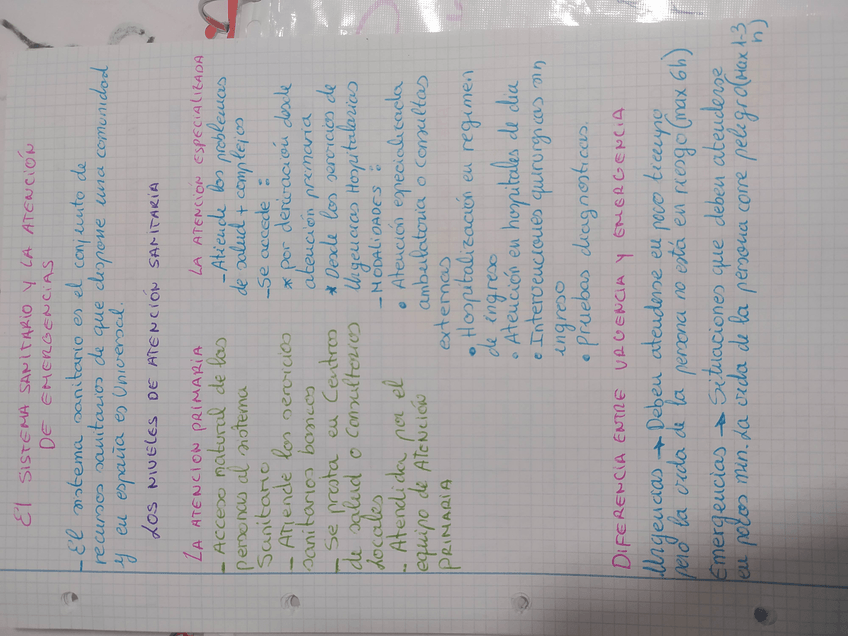 El SISTEMA SANITARIO Y LA ATENCIÓN
DE EMERGENCIAS
- El sistema sanitario es el conjunto de
recursos sanitarios de que dispone una comunidad
y en españa es Universal.
LOS NIVELES DE ATENCIÓN SANITARIA
LA ATENCION PRIMARIA
- Acceso natural de las
personas al sistema
Sanitario
- Atiende los servicios
sanitarios basicos
- Se presta en Centros
de salud o Consultorios
Locales
- Atendida por el
equipo de ATENCIÓN
PRIMARIA
LA ATENCIÓN ESPECIALIZADA
- Atiende los problemas
de salud + complejos
- Se accede :
* por derivación desde
atención primaria
* Desde los servicios de
Urgencias Hospitalarias
- MODALIDADES :
• Atención especializada
ambulatoria o consultas
externas
• Hospitalización en regimen
de ingreso
• Atención en hospitales de dia
• Intervenciones quirurgicas sin
ingreso
• Pruebas diagnosticas.
DIFERENCIA ENTRE URGENCIA Y EMERGENCIA
Urgencias → Deben atenderse en poco tiempo
pero la vida de la persona no está en riesgo (max 6h)
Emergencias → Situaciones que deben atenderse
en pocos min. La vida de la persona corre peligro (Max 1-3
h)